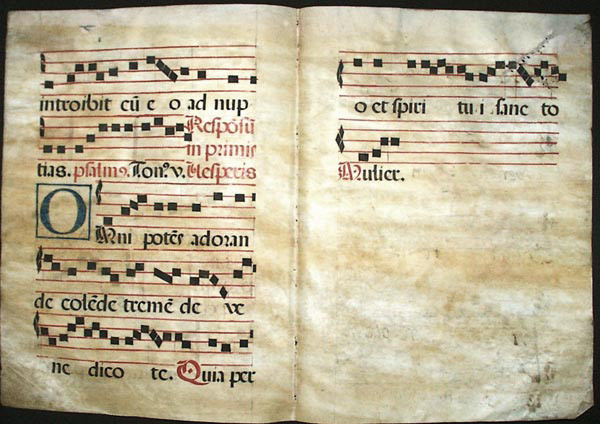 introibit cū e o ad nup
Respōsū
in primis
tias. psalmꝰ. Ton.º v. Vesperis
O
Mni potēs adoran
de colēde tremē de ve
ne dico te. Quia per
o et spiri tu i. sanc to
Mulier.